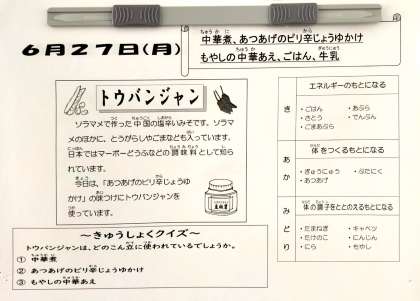 6月27日(月)
中華煮、あつあげのピリ辛じょうゆかけ
もやしの中華あえ、ごはん、牛乳
トウバンジャン
ソラマメで作った中国の塩辛いみそです。ソラマ
メのほかに、とうがらしやごまなども入っています。
日本ではマーボーどうふなどの調味料として知ら
れています。
今日は、「あつあげのピリ辛じょうゆ
かけ」の味つけにトウバンジャンを
使っています。
~きゅうしょくクイズ~
トウバンジャンは、どのこん立に使われているでしょうか。
① 中華煮
② あつあげのピリ辛じょうゆかけ
③ もやしの中華あえ
エネルギーのもとになる
き
・ごはん ・あぶら
・さとう ・でんぷん
・ごまあぶら
体をつくるもとになる
あか
・ぎゅうにゅう ・ぶたにく
・あつあげ
体の調子をととのえるもとになる
みどり
・たまねぎ ・キャベツ
・たけのこ ・にんじん
・にら ・もやし